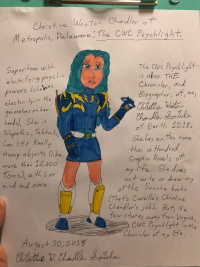 Christine Weston Chandler of
Metropolis, Delaware: The CWC Psychlight.
Superhero with
electrifying psychic
powers
electricity in the
generates in her
body. She is
Telepathic,
can Lift Really
Heavy objects (like
more than 10,000
Tons), with her
mind and more.
The CWC Psychlight
is also THE
Chronicler, and
Biographer, of, me,
Christine Weston
Chandler
of Earth 1218.
She has written more
than a Hundred
Graphic Novels of
my life. She does
not write or draw any
of the Sonichu books
(That's Camella Christine
Chandler's job). But, a
few states away from Virginia,
CWC Psychlight is the
Chronicler of my life!
August 30, 2018
Christine W. Chandler